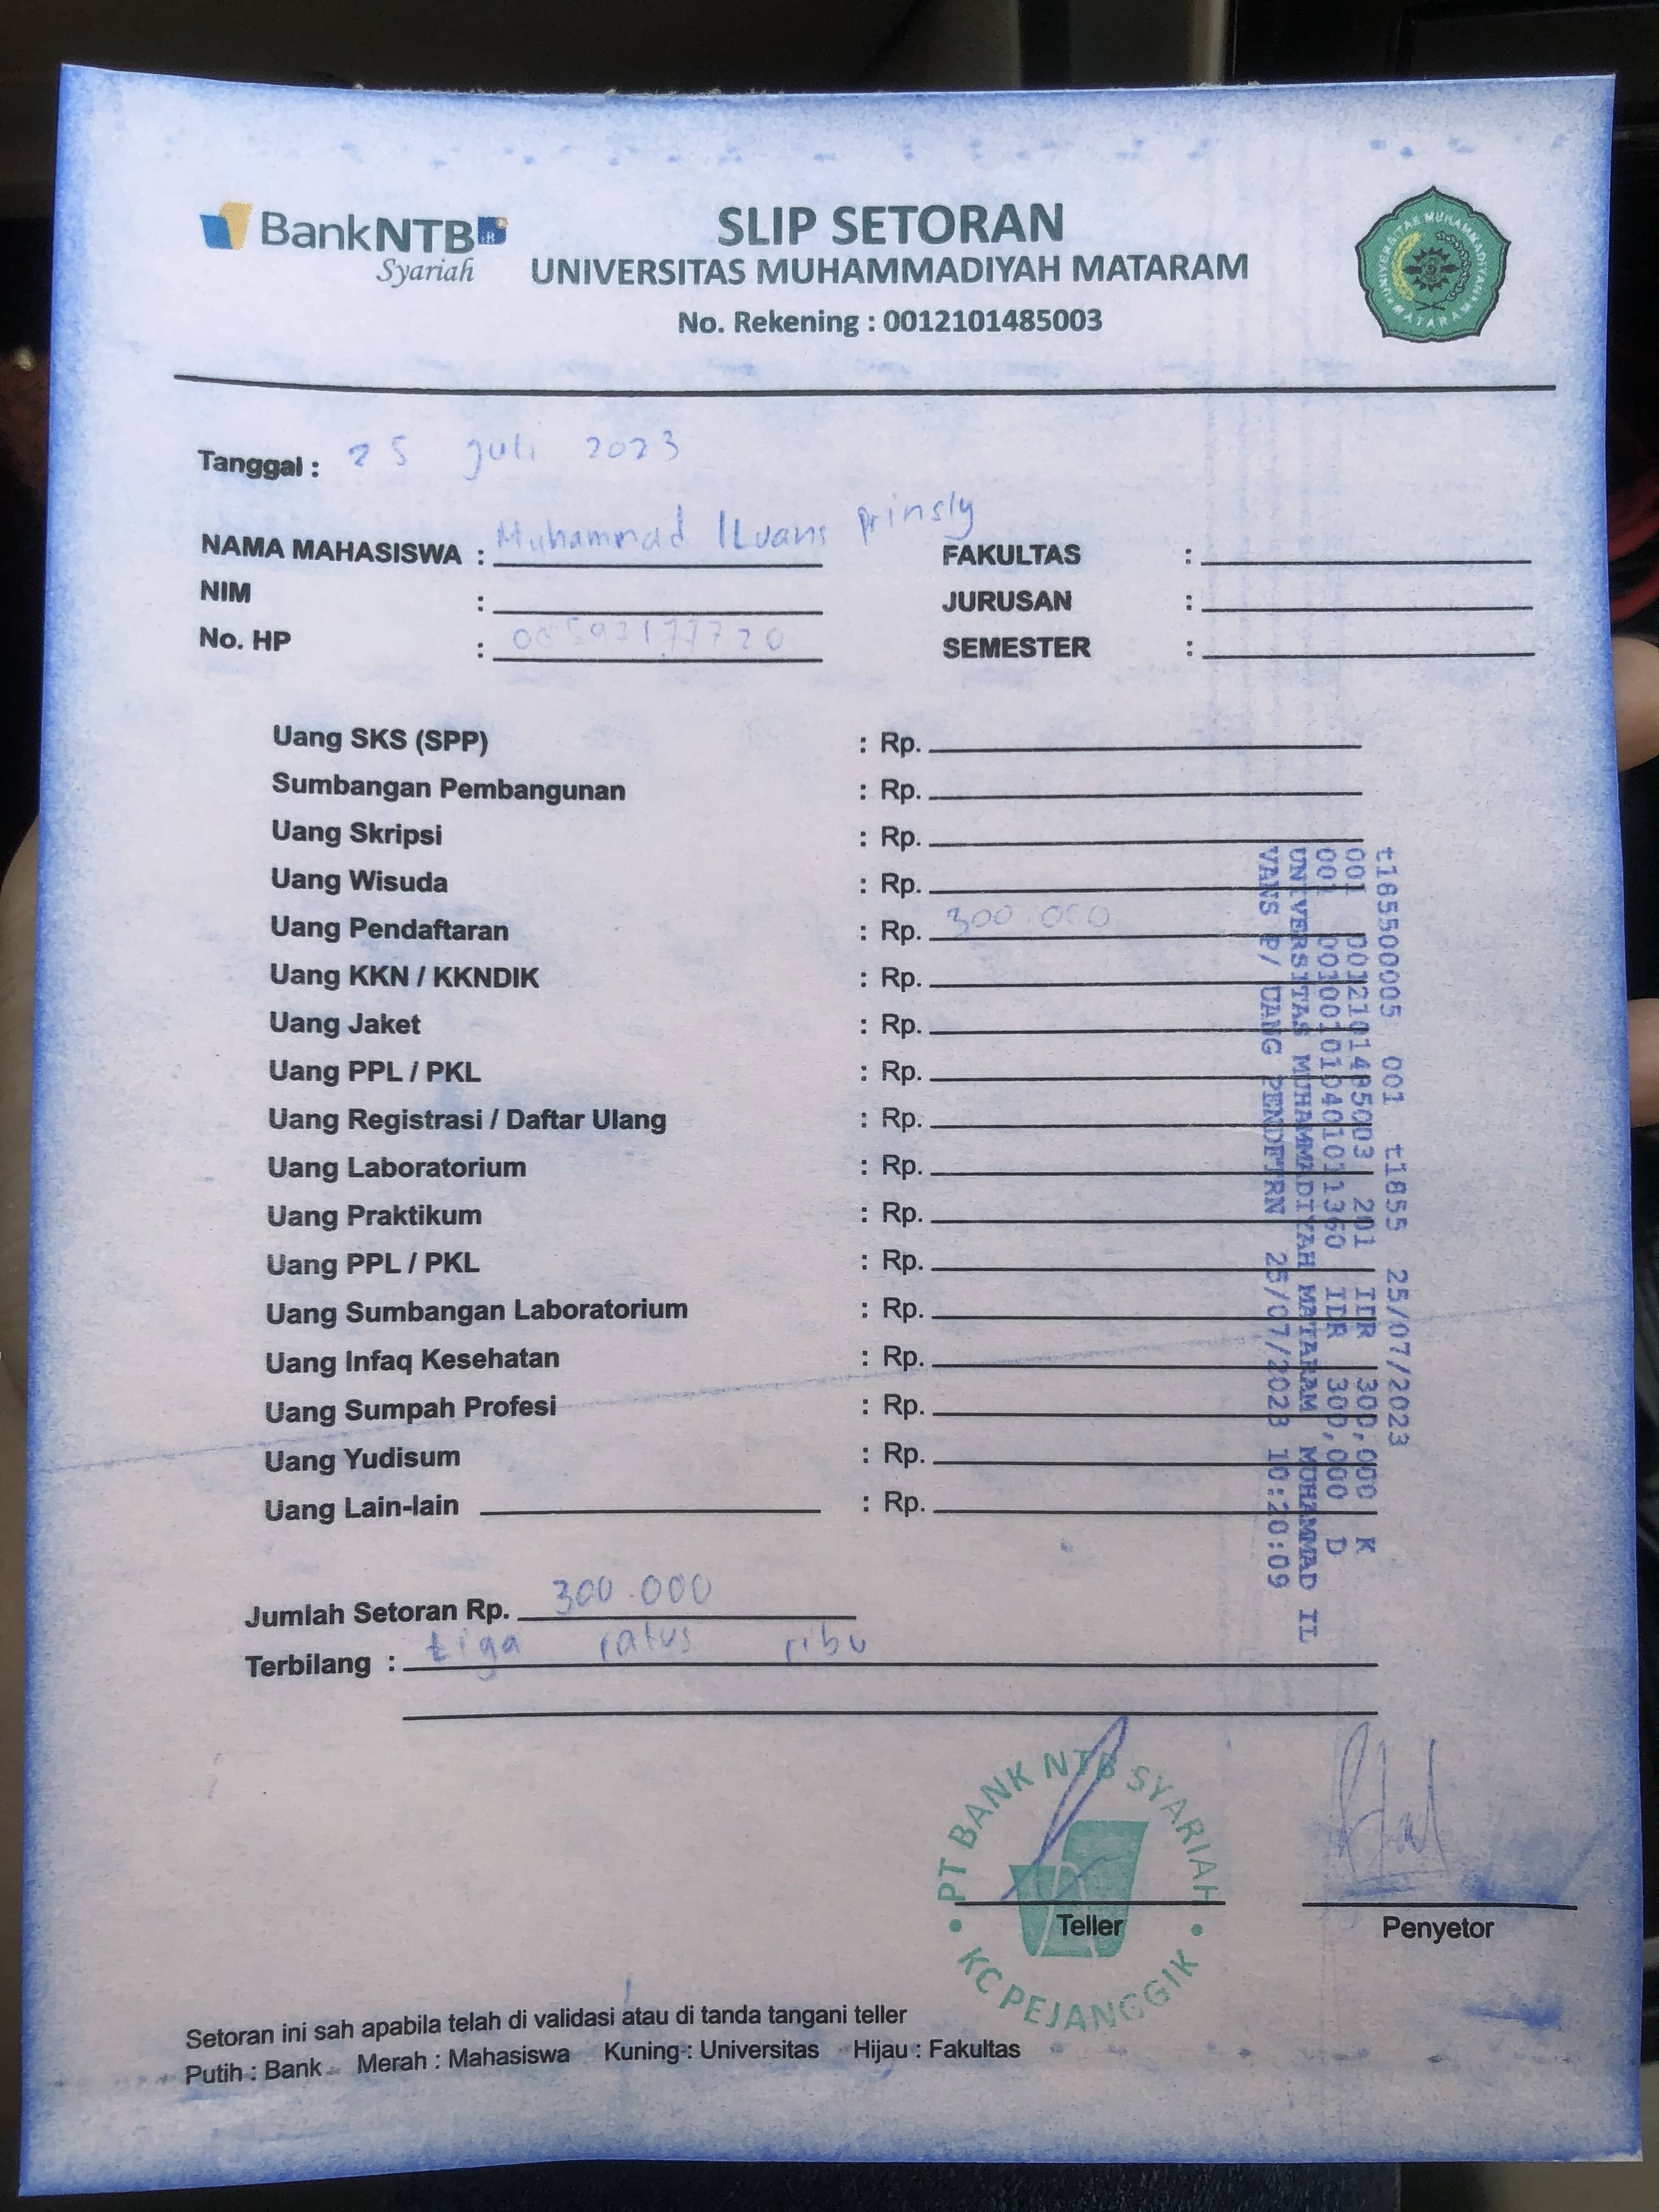 BankNTB
Syariah
SLIP SETORAN
UNIVERSITAS MUHAMMADIYAH MATARAM
No. Rekening : 0012101485003
UNIVERSITAS MUHAMMADIYAH MATARAM
Tanggal : 25 Juli 2023
NAMA MAHASISWA : Muhammad ILvans Prinsly
NIM :
No. HP :
FAKULTAS :
JURUSAN :
SEMESTER :
Uang SKS (SPP) : Rp.
Sumbangan Pembangunan : Rp.
Uang Skripsi : Rp.
Uang Wisuda : Rp.
Uang Pendaftaran : Rp. 300.000
Uang KKN / KKNDIK : Rp.
Uang Jaket : Rp.
Uang PPL / PKL : Rp.
Uang Registrasi / Daftar Ulang : Rp.
Uang Laboratorium : Rp.
Uang Praktikum : Rp.
Uang PPL / PKL : Rp.
Uang Sumbangan Laboratorium : Rp.
Uang Infaq Kesehatan : Rp.
Uang Sumpah Profesi : Rp.
Uang Yudisum : Rp.
Uang Lain-lain : Rp.
t185500005 001 t1855 25/07/2023
001 0012101485003 201 IDR 300,000 K
001 001001010401011360 IDR 300,000 D
UNIVERSITAS MUHAMMADIYAH MATARAM MUHAMMAD IL
VANS P/ UANG PENDFTRN 25/07/2023 10:20:09
Jumlah Setoran Rp. 300.000
Terbilang : tiga ratus ribu
PT BANK NTB SYARIAH
KC PEJANGGIK
Teller
Penyetor
Setoran ini sah apabila telah di validasi atau di tanda tangani teller
Putih : Bank Merah : Mahasiswa Kuning : Universitas Hijau : Fakultas